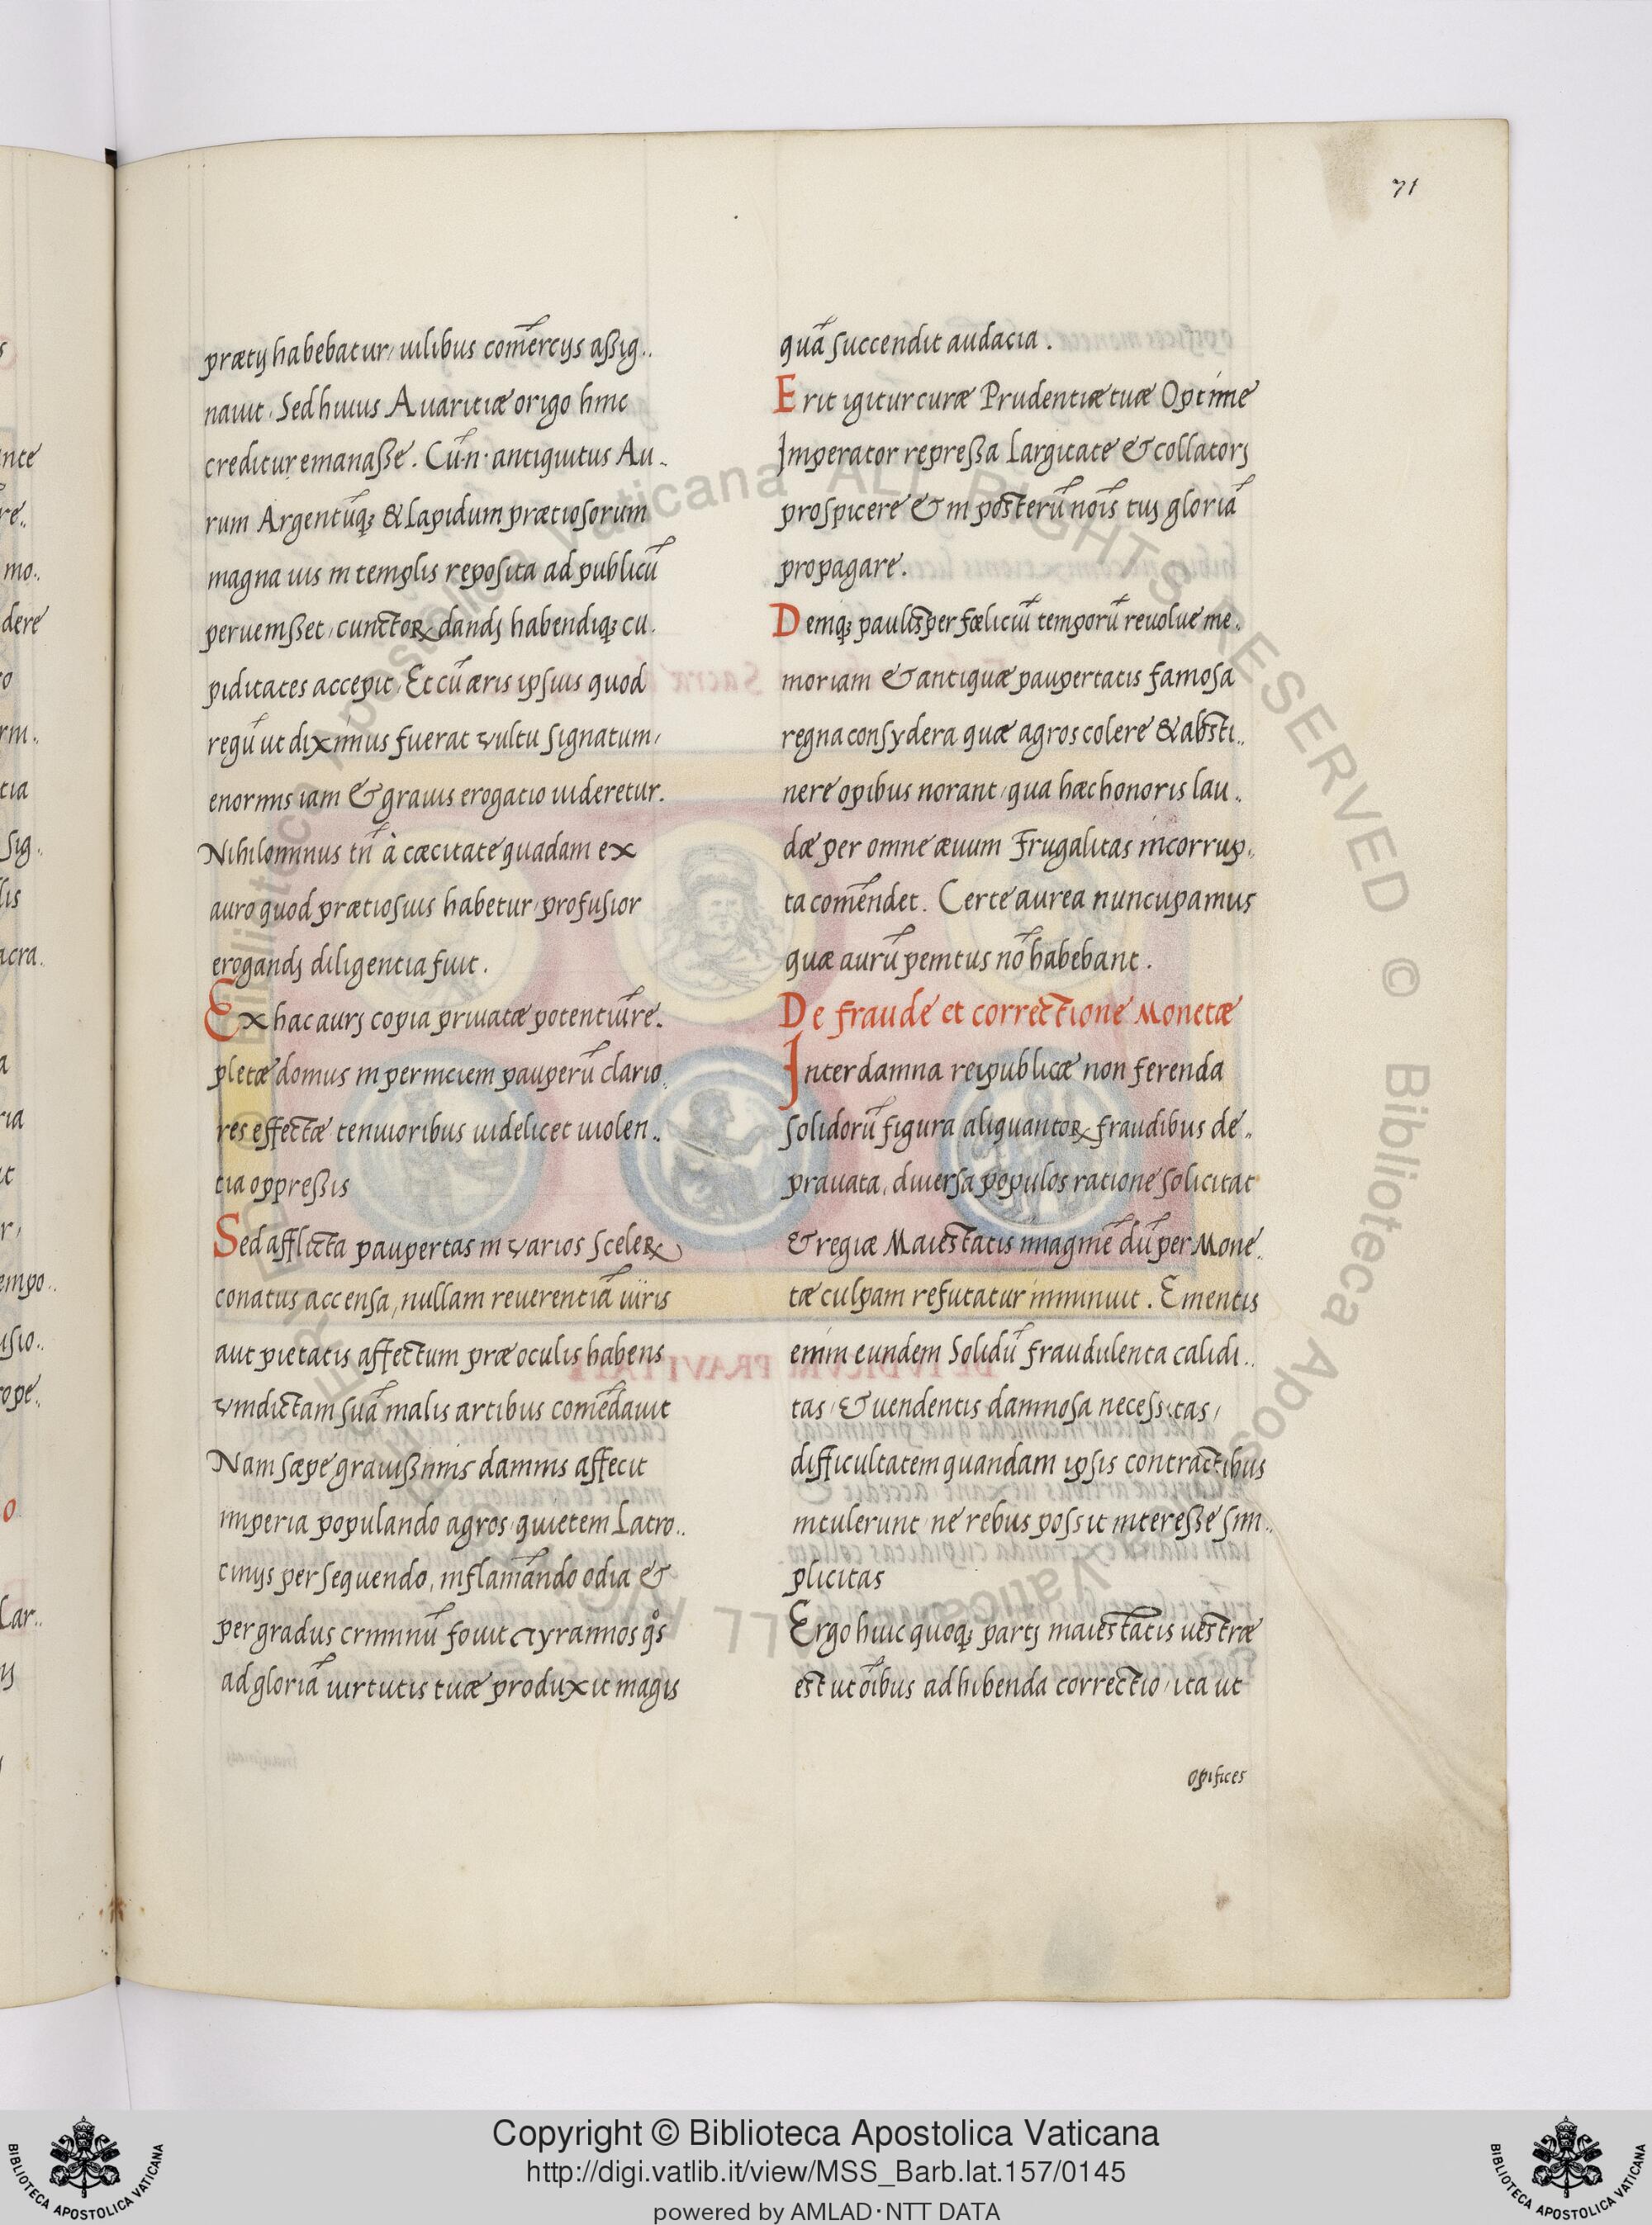 71
prætij habebatur, uilibus com̃ercijs aßig..
nauit. Sed huius Auaritiæ origo hinc
creditur emanaße. Cũ.n. antiquitus Au..
rum Argentũq; & Lapidum prætiosorum
magna uis in templis reposita ad publicũ
peruenißet, cunctoꝝ dandj habendiq; cu.
piditates accepit, Et cũ æris ipsius quod
regũ ut diximus fuerat vultu signatum,
enormis iam & grauis erogatio uideretur.
Nihilominus tñ à cæcitate quadam ex
auro quod prætiosius habetur, profusior
erogandj diligentia fuit.
Ex hac aurj copia priuatæ potentiũ re..
pletæ domus in perniciem pauperũ clario.
res effectæ tenuioribus uidelicet uiolen..
tia oppreßis
Sed afflicta paupertas in varios sceleꝝ
conatus accensa, nullam reuerentiã iuris
aut pietatis affectum præ oculis habens
vindictam suã malis artibus com̃edauit
Nam sæpe grauißimis damnis affecit
imperia populando agros, quietem Latro..
cinijs persequendo, inflam̃ando odia &
per gradus criminũ fouit Tyrannos q̊s
ad gloriã uirtutis tuæ produxit magis
quã succendit audacia.
Erit igitur curæ Prudentiæ tuæ Optime
Imperator repreßa Largitate & collatorj
prospicere & in posterũ nõis tuj gloriã
propagare.
Deniq; paulisper fœliciũ temporũ reuolue me.
moriam & antiquæ paupertatis famosa
regna consydera quæ agros colere & absti..
nere opibus norant, qua hæc honoris lau..
dæ per omne æuum Frugalitas incorrup..
ta com̃endet. Certe aurea nuncupamus
quæ aurũ penitus nõ habebant.
De fraude et correctione Monetæ
Inter damna reipublicæ non ferenda
solidorũ figura aliquantoꝝ fraudibus de..
prauata, diuersa populos ratione solicitat
& regiæ Maiestatis imaginẽ dũ per Mone.
tæ culpam refutatur imminuit. Ementis
enim eundem Solidũ fraudulenta calidi..
tas, & uendentis damnosa necessitas,
difficultatem quandam ipsis contractibus
intulerunt, ne rebus possit intereße sim..
plicitas
Ergo huic quoq; partj maiestatis uestræ
est ut õibus adhibenda correctio, ita ut
opifices
Copyright © Biblioteca Apostolica Vaticana
http://digi.vatlib.it/view/MSS_Barb.lat.157/0145
powered by AMLAD·NTT DATA